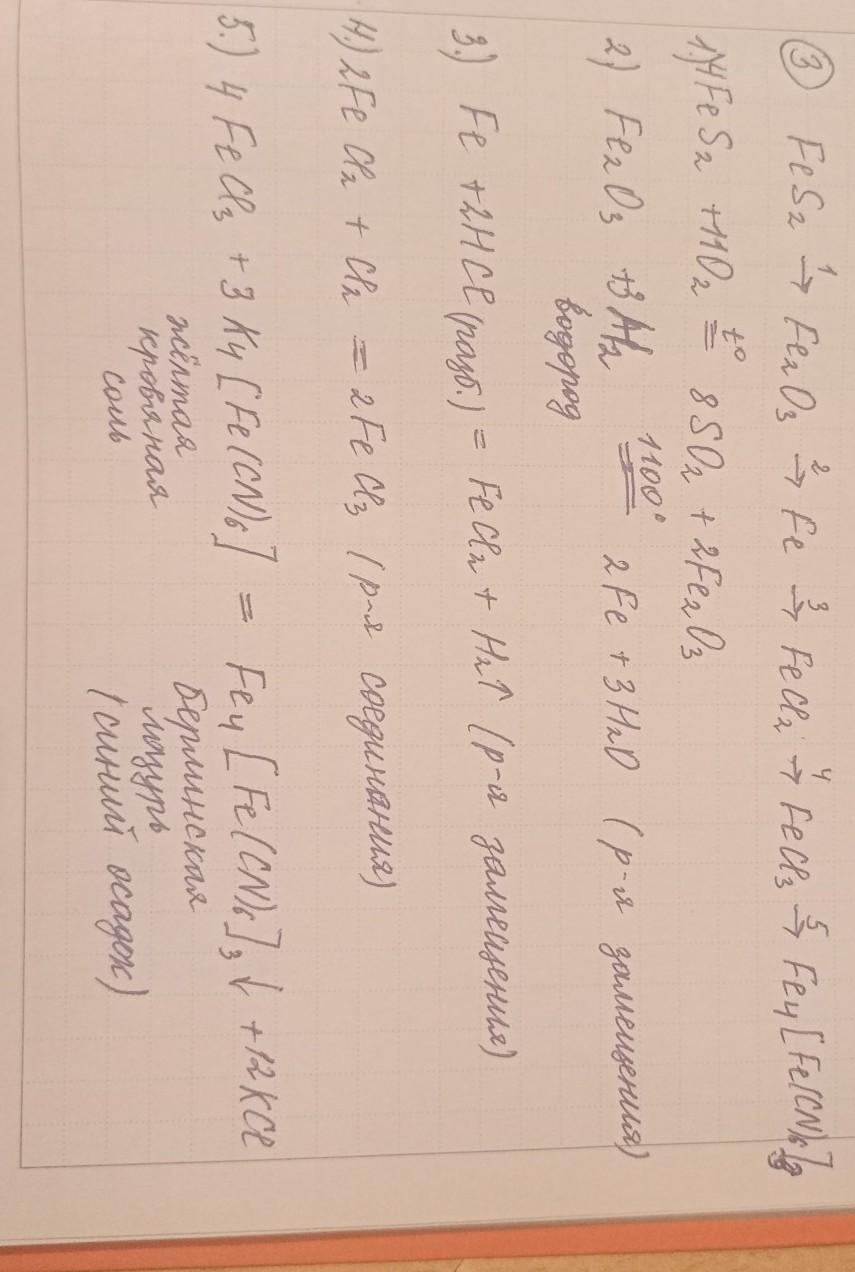 ③ FeS₂ →¹ Fe₂O₃ →² Fe →³ FeCl₂ →⁴ FeCl₃ →⁵ Fe₄[Fe(CN)₆]₃
1.) 4FeS₂ + 11O₂ =t° 8SO₂ + 2Fe₂O₃
2.) Fe₂O₃ + 3H₂ =1100° 2Fe + 3H₂O (р-я замещения)
водород
3.) Fe + 2HCl (разб.) = FeCl₂ + H₂↑ (р-я замещения)
4.) 2FeCl₂ + Cl₂ = 2FeCl₃ (р-я соединания)
5.) 4FeCl₃ + 3K₄[Fe(CN)₆] = Fe₄[Fe(CN)₆]₃↓ + 12KCl
жёлтая берлинская
кровяная лазурь
соль (синий осадок)